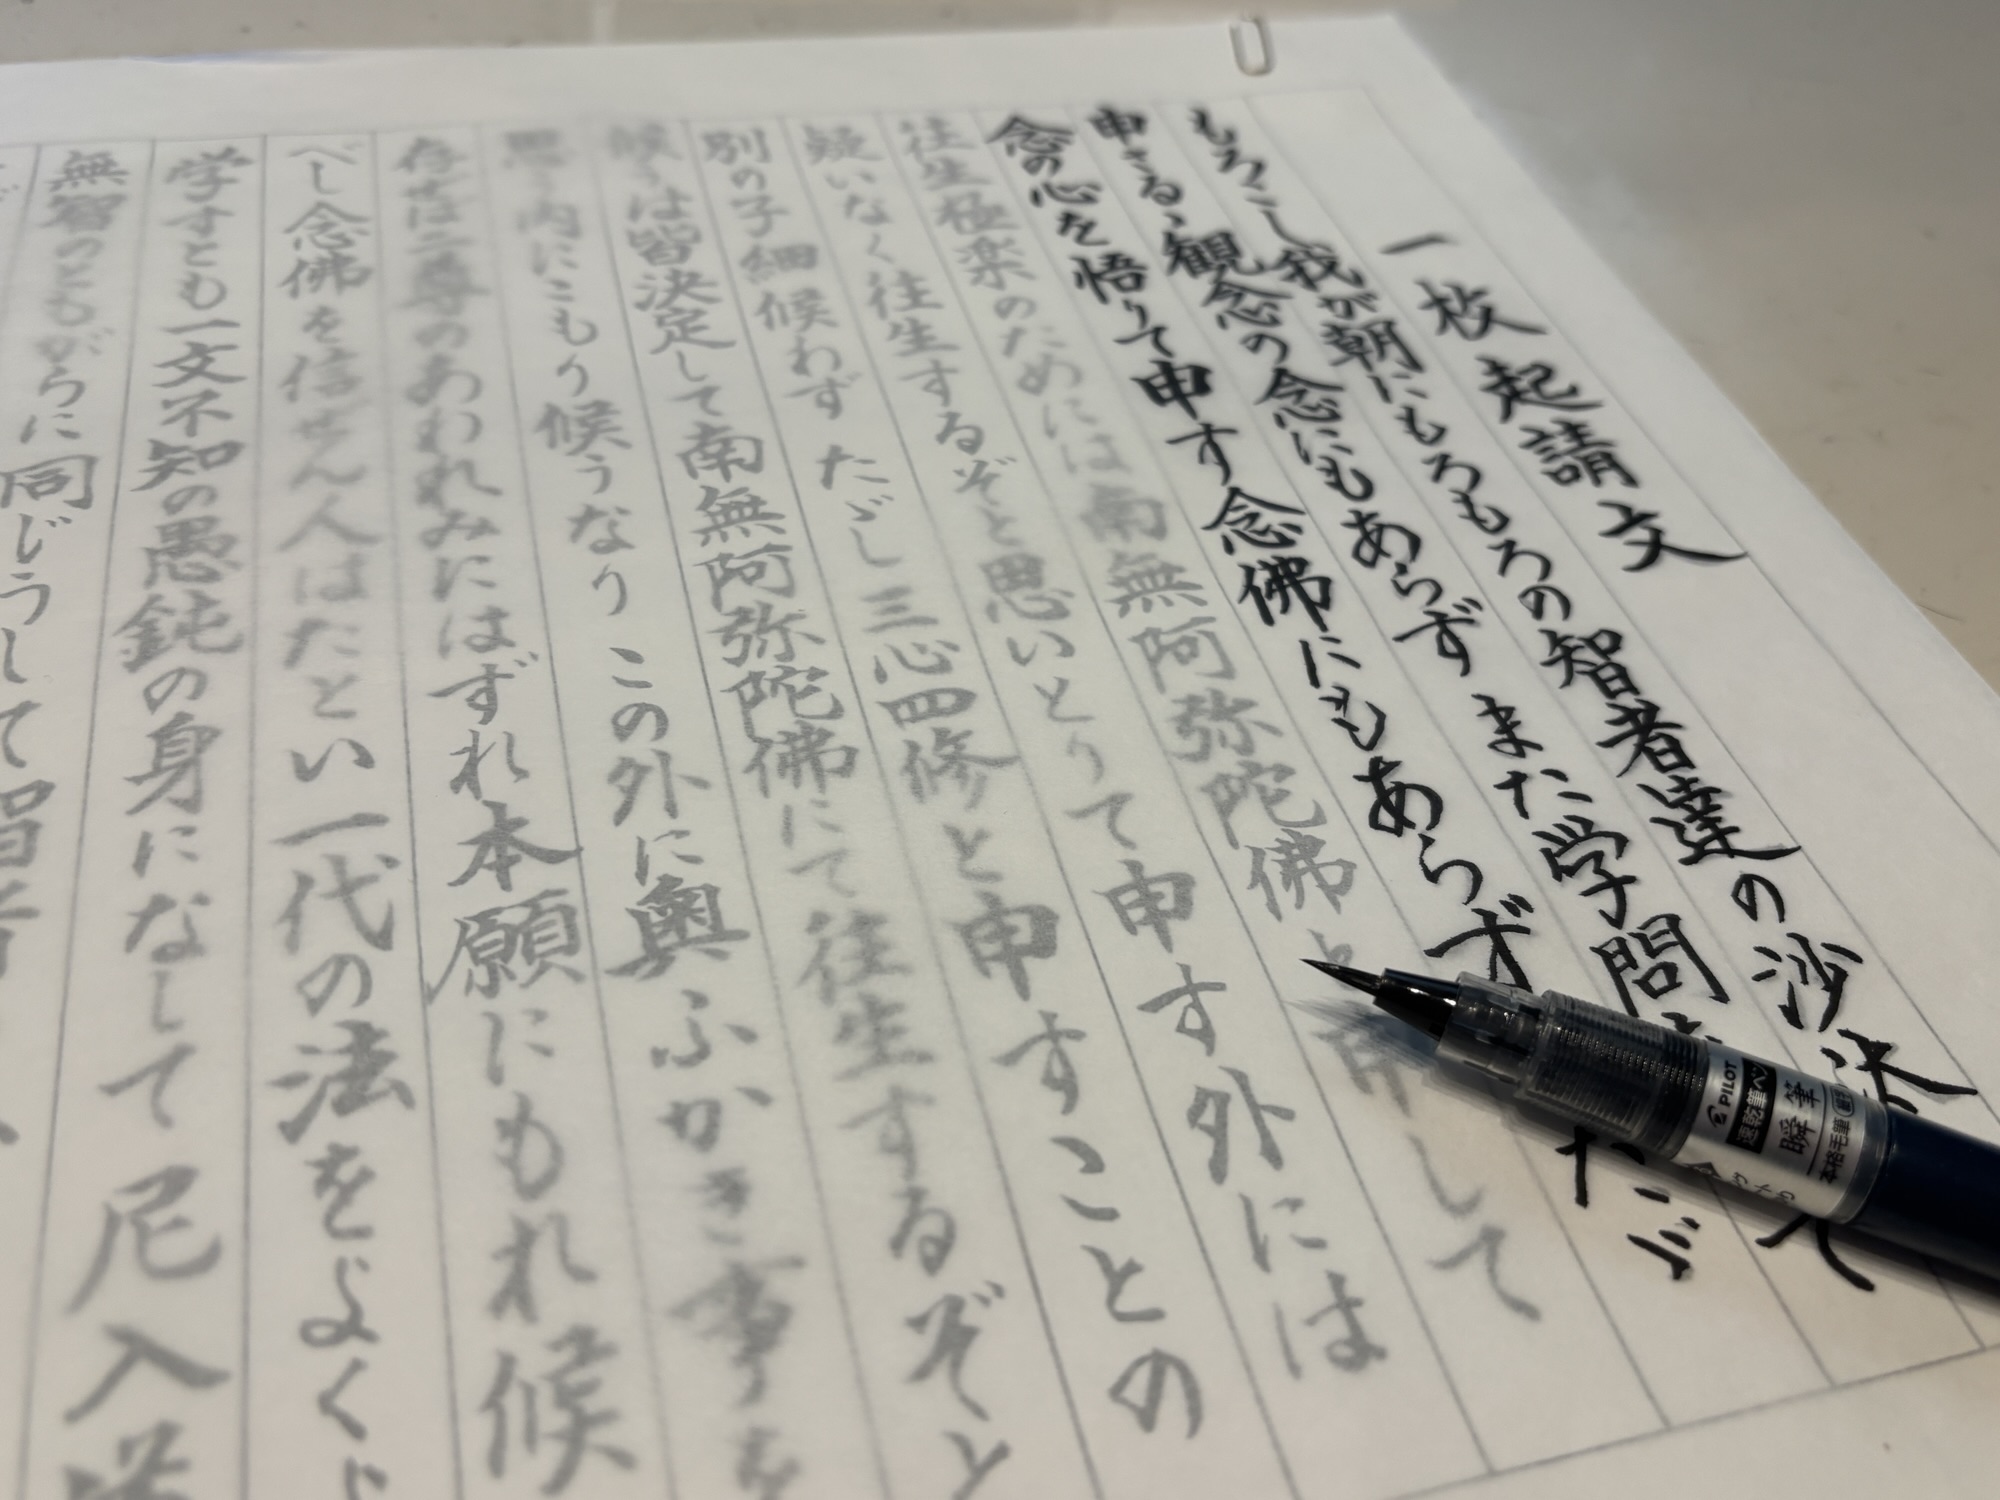 一枚起請文
もろこし我が朝にもろもろの智者達の沙汰して
申さるゝ観念の念にもあらず また学問
念の心を悟りて申す念佛にもあらず たゞ
往生極楽のためには南無阿弥陀佛と申して
疑いなく往生するぞと思いとりて申す外には
別の子細候わず たゞし三心四修と申すことの
候うは皆決定して南無阿弥陀佛にて往生するぞと
思う内にこもり候うなり この外に奥ふかき事を
存せば二尊のあわれみにはずれ本願にもれ候
べし 念佛を信ぜん人はたとい一代の法をよく
学すとも一文不知の愚鈍の身になして尼入
無智のともがらに同じうして智者
PILOT
速乾筆ペン
瞬筆
本格毛筆